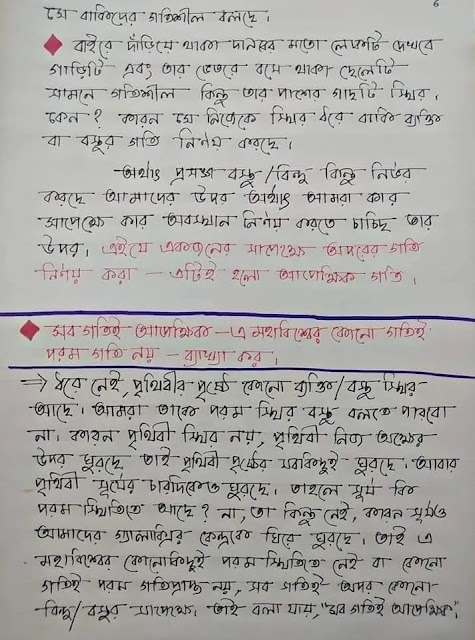 6
সে বাকিদের গতিশীল বলছে।
বাইরে দাঁড়িয়ে থাকা মানুষের মতো লোকটি দেখবে
গাড়িটি এবং তার ভেতরে বসে থাকা ছেলেটি
সামনে গতিশীল কিন্তু তার পাশের গাছটি স্থির।
কেন? কারন সে নিজেকে স্থির ধরে বাকি ব্যক্তি
বা বস্তুর গতি নির্ণয় করছে।
অর্থাৎ প্রসঙ্গ বস্তু/বিন্দু কিন্তু নির্ভর
করছে আমাদের উপর অর্থাৎ আমরা কার
সাপেক্ষে কার অবস্থান নির্ণয় করতে চাচ্ছি তার
উপর। এইযে একজনের সাপেক্ষে অপরের গতি
নির্ণয় করা – এটিই হলো আপেক্ষিক গতি।
সব গতিই আপেক্ষিক – এ মহাবিশ্বের কোনো গতিই
পরম গতি নয় – ব্যাখ্যা কর।
⇒ ধরে নেই, পৃথিবীর পৃষ্ঠে কোনো ব্যক্তি/বস্তু স্থির
আছে। আমরা তাকে পরম স্থির বস্তু বলতে পারবো
না। কারন পৃথিবী স্থির নয়, পৃথিবী নিজ অক্ষের
উপর ঘুরছে তাই পৃথিবী পৃষ্ঠের সবকিছুই ঘুরছে। আবার
পৃথিবী সূর্যের চারদিকেও ঘুরছে। তাহলে সূর্য কি
পরম স্থিতিতে আছে? না, তা কিন্তু নেই, কারন সূর্যও
আমাদের গ্যালাক্সির কেন্দ্রকে ঘিরে ঘুরছে। তাই এ
মহাবিশ্বের কোনোকিছুই পরম স্থিতিতে নেই বা কোনো
গতিই পরম গতিপ্রাপ্ত নয়, সব গতিই অপর কোনো
বিন্দু/বস্তুর সাপেক্ষে। তাই বলা যায়, "সব গতিই আপেক্ষিক"।